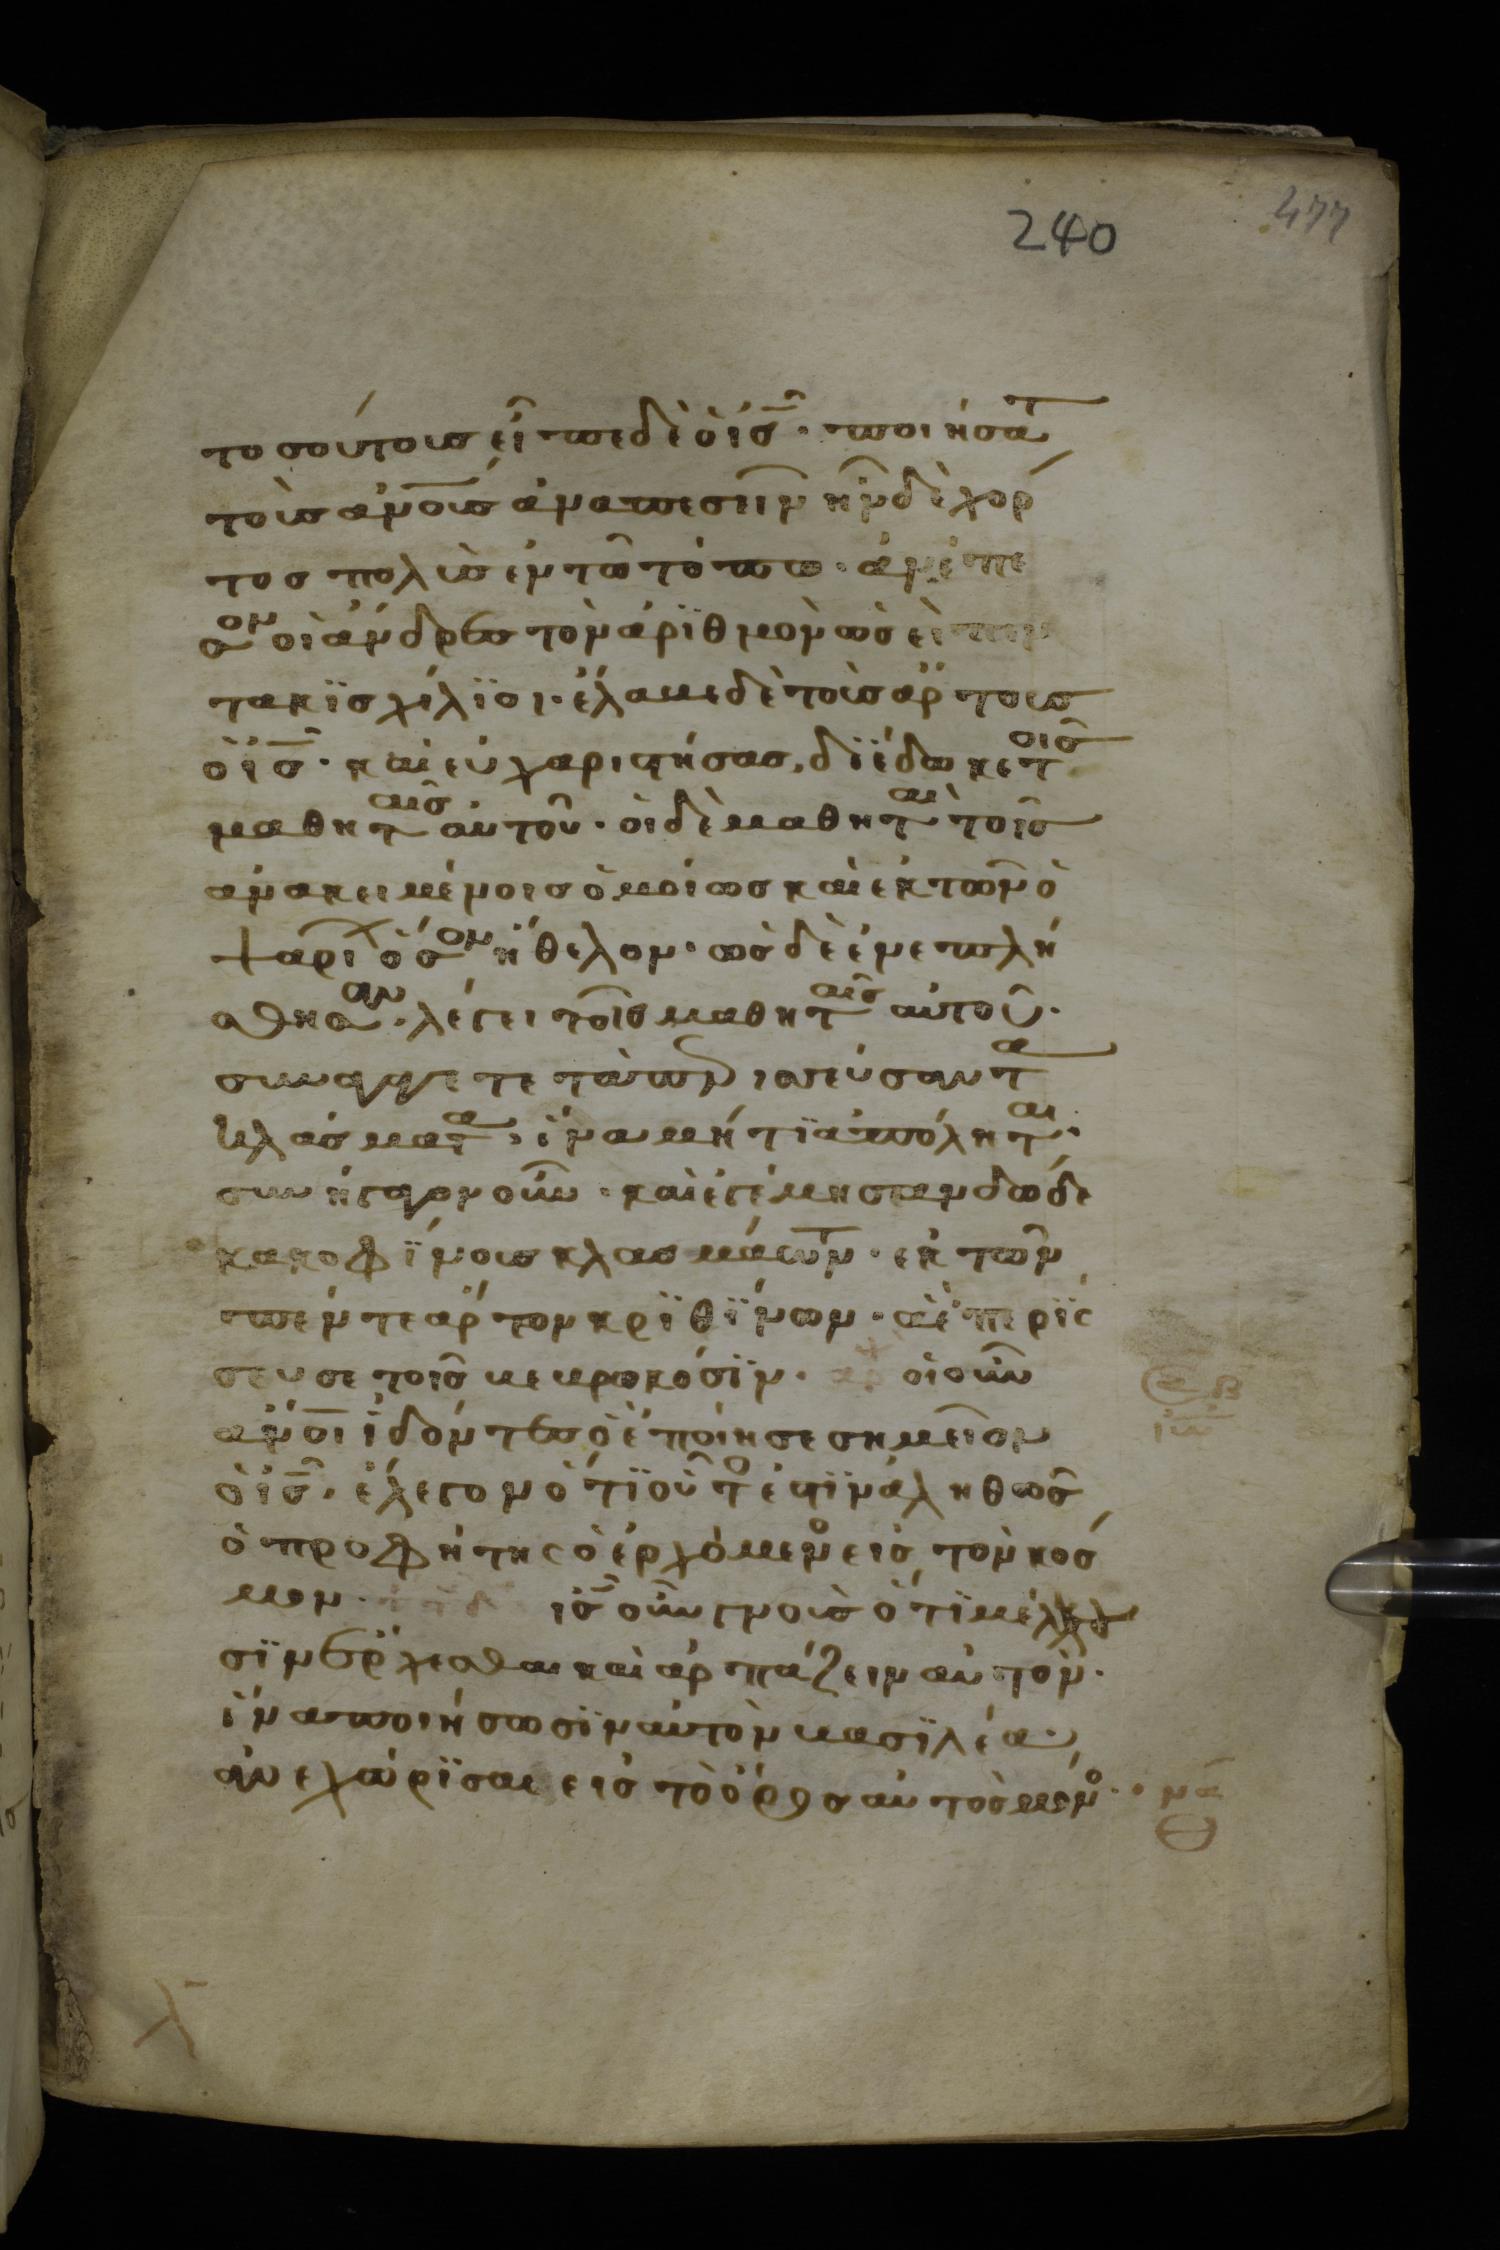 240
477
τοσούτους εἶπε δὲ ὁ ις̅· ποιήσατ
τοὺς ανους ἀναπεσεῖν ἦν δὲ χόρ
τος πολὺς ἐν τῶ τόπω· ἀνέπε
σον οἱ ἄνδρες τὸν ἀρϊθμὸν ὡσεὶ πεν
τακϊσχίλϊοι· ἔλαβε δὲ τοὺς ἄρτους
ὁ ις̅· καὶ εὐχαριστήσας, δϊέδωκε τοῖς
μαθηταῖς αὐτοῦ· οἱ δὲ μαθηταὶ τοῖς
ἀνακειμένοις ὁμοίως καὶ ἐκ τῶν ὀ
ψαρί ὅσον ἤθελον· ὡς δὲ ἐνεπλή
σθησαν· λέγει τοῖς μαθηταῖς αὐτοῦ·
συναγάγετε τὰ περισεύσαντα
κλάσματα, ἵνα μή τϊ ἀπόληται·
συνήγαγον οὖν· καὶ ἐγέμησαν δώδε
κα κοφΐνους κλασμάτων· ἐκ τῶν
πέντε ἄρτον κρϊθΐνων· ἃ ἐπερΐς
σευσε τοῖς βεβρωκόσϊν· αρ οἱ οὖν
ανοι ἰδόντες ὃ ἐποίησε σημεῖον
ὁ ις̅, ἔλεγον ὅτϊ οὗτο ἐστϊν ἀληθῶς
ὁ προφήτης ὁ ἐρχόμενο εἰς τὸν κόσ
μον· ις̅ οὖν γνοὺς ὅτϊ μέλλου
σϊν ἔρχεσθαι καὶ ἁρπάζειν αὐτὸν·
ἵνα ποιήσωσϊν αὐτὸν βασϊλέα·
ἀνεχώρϊσαι εἰς τὸ ὄρος αὐτὸς μόνο·